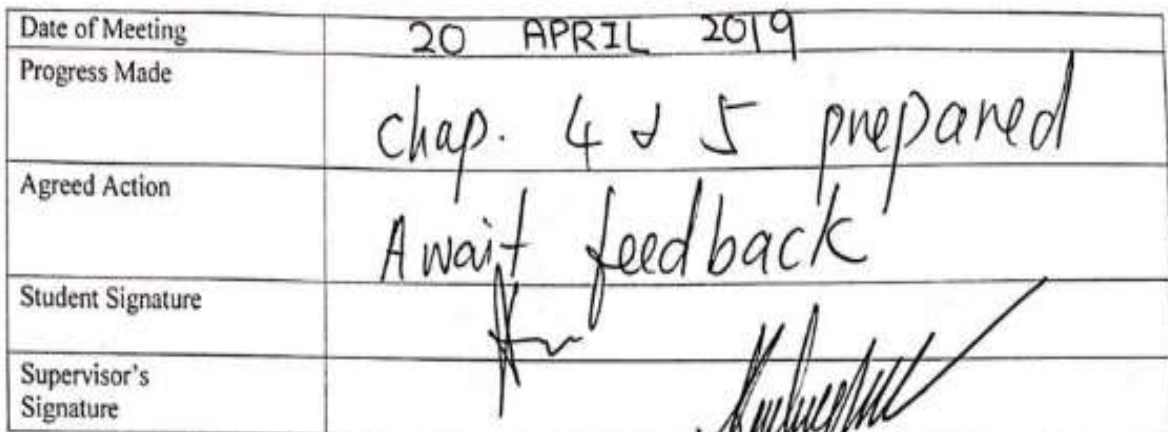 Date of Meeting 20 APRIL 2019
Progress Made
chap. 4 & 5 prepared
Agreed Action
Await feedback
Student Signature
Supervisor's
Signature